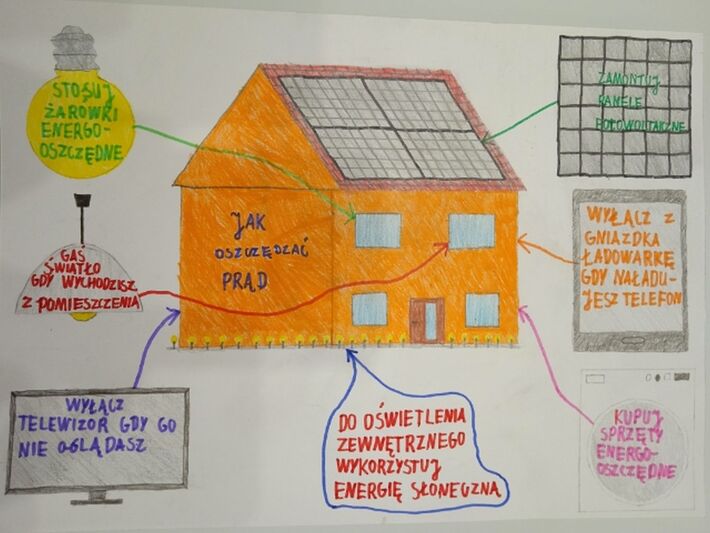 STOSUJ
ŻARÓWKI
ENERGO-
OSZCZĘDNE
ZAMONTUJ
PANELE
FOTOWOLTAICZNE
JAK
OSZCZĘDZAĆ
PRĄD
GAŚ
ŚWIATŁO
GDY WYCHODZISZ
Z POMIESZCZENIA
WYŁĄCZ Z
GNIAZDKA
ŁADOWARKĘ
GDY NAŁADU-
JESZ TELEFON
WYŁĄCZ
TELEWIZOR GDY GO
NIE OGLĄDASZ
DO OŚWIETLENIA
ZEWNĘTRZNEGO
WYKORZYSTUJ
ENERGIĘ SŁONECZNĄ
KUPUJ
SPRZĘTY
ENERGO-
OSZCZĘDNE